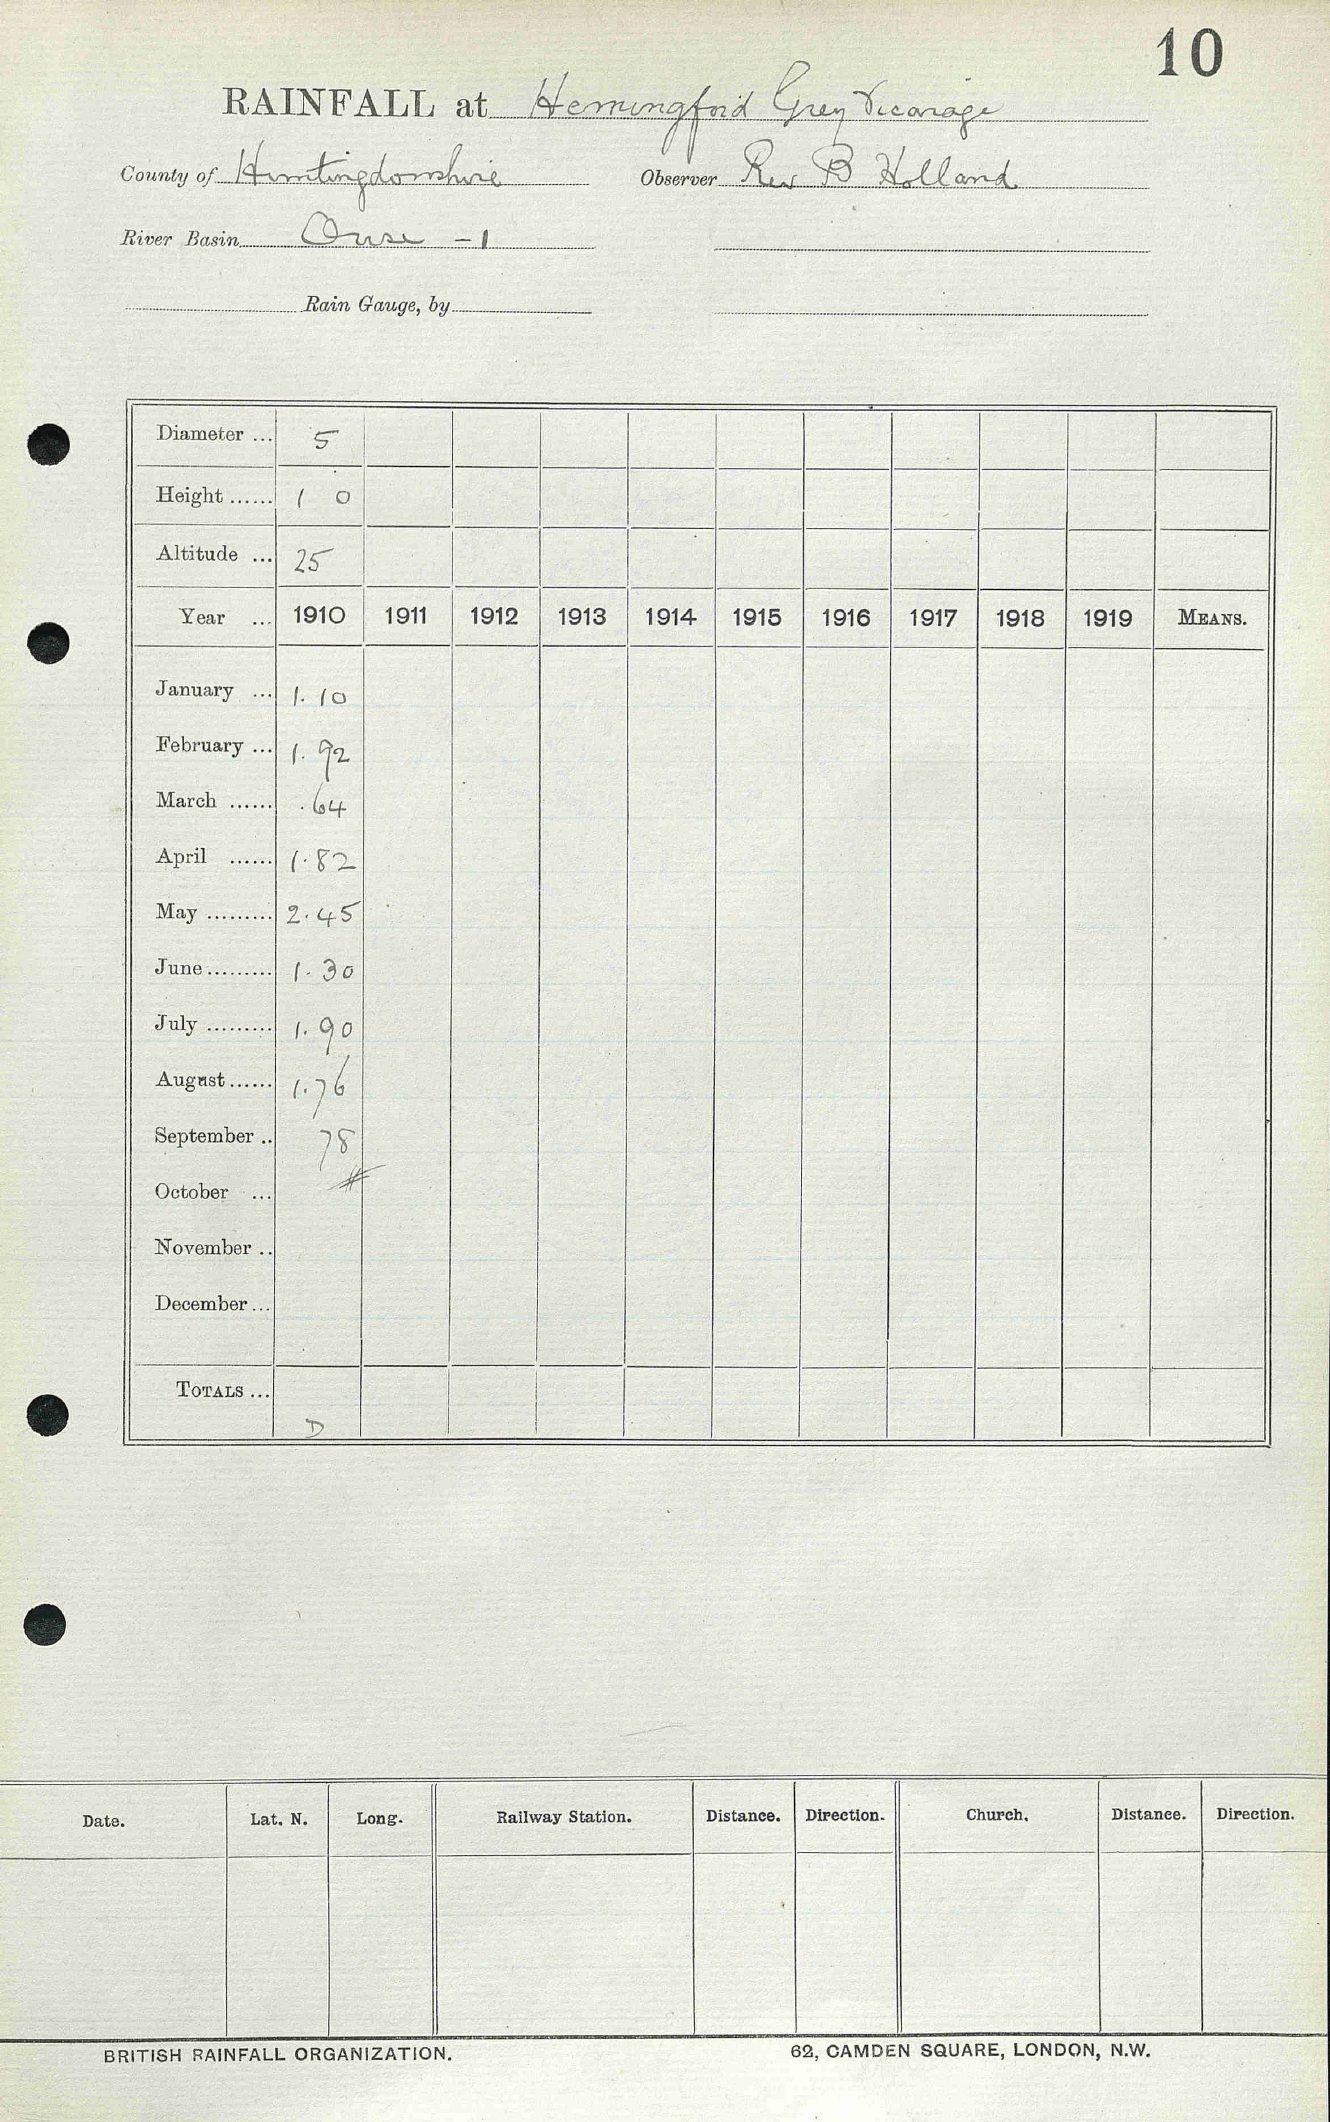 10
RAINFALL at Hemingford Grey Vicarage
County of Huntingdonshire Observer Rev B Holland
River Basin Ouse -1
Rain Gauge, by
Diameter ... 5
Height ...... 1 0
Altitude ... 25
Year ... 1910 1911 1912 1913 1914 1915 1916 1917 1918 1919 MEANS.
January ... 1.10
February ... 1.92
March ...... .64
April ...... 1.82
May ......... 2.45
June ......... 1.30
July ......... 1.90
August ...... 1.76
September .. 78
October ... #
November ..
December ...
TOTALS ...
D
Date. Lat. N. Long. Railway Station. Distance. Direction. Church. Distance. Direction.
BRITISH RAINFALL ORGANIZATION. 62, CAMDEN SQUARE, LONDON, N.W.